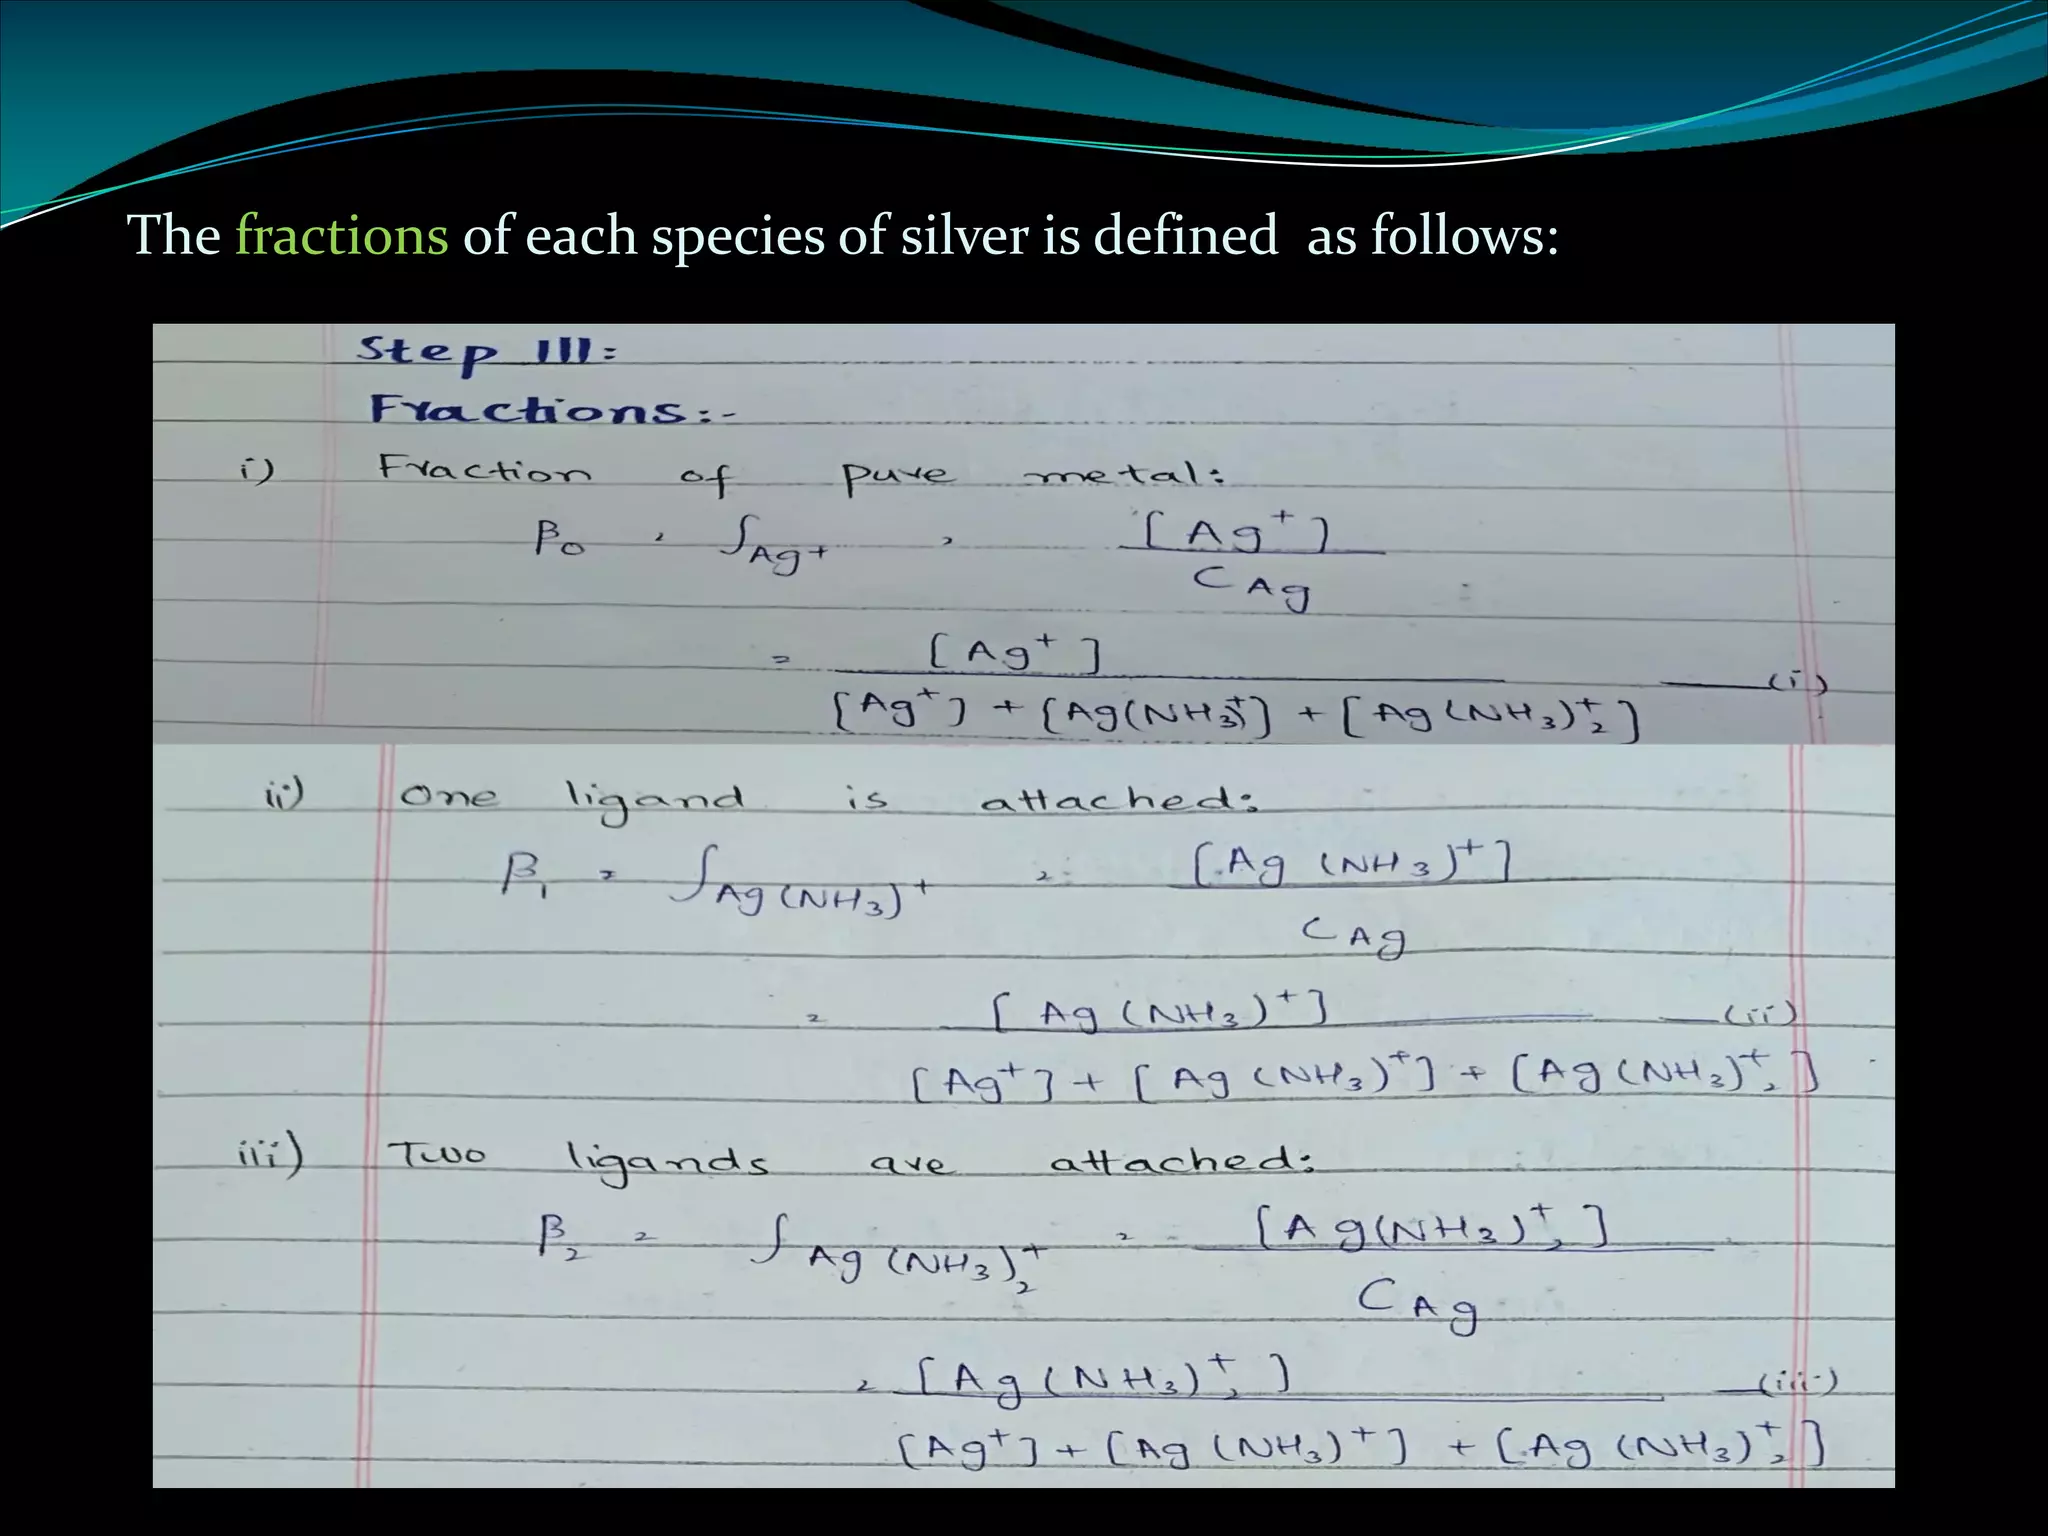 The fractions of each species of silver is defined as follows:
Step III:
Fractions:-
i) Fraction of pure metal:
β₀ = ∫Ag⁺ = [Ag⁺]
CAg
= [Ag⁺] —(i)
[Ag⁺] + [Ag(NH₃)⁺] + [Ag(NH₃)₂⁺]
ii) One ligand is attached:
β₁ = ∫Ag(NH₃)⁺ = [Ag(NH₃)⁺]
CAg
= [Ag(NH₃)⁺] —(ii)
[Ag⁺] + [Ag(NH₃)⁺] + [Ag(NH₃)₂⁺]
iii) Two ligands are attached:
β₂ = ∫Ag(NH₃)₂⁺ = [Ag(NH₃)₂⁺]
CAg
= [Ag(NH₃)₂⁺] —(iii)
[Ag⁺] + [Ag(NH₃)⁺] + [Ag(NH₃)₂⁺]